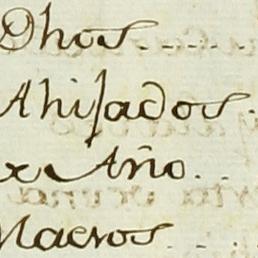 Dhos
Ahijados
x Año
Macros